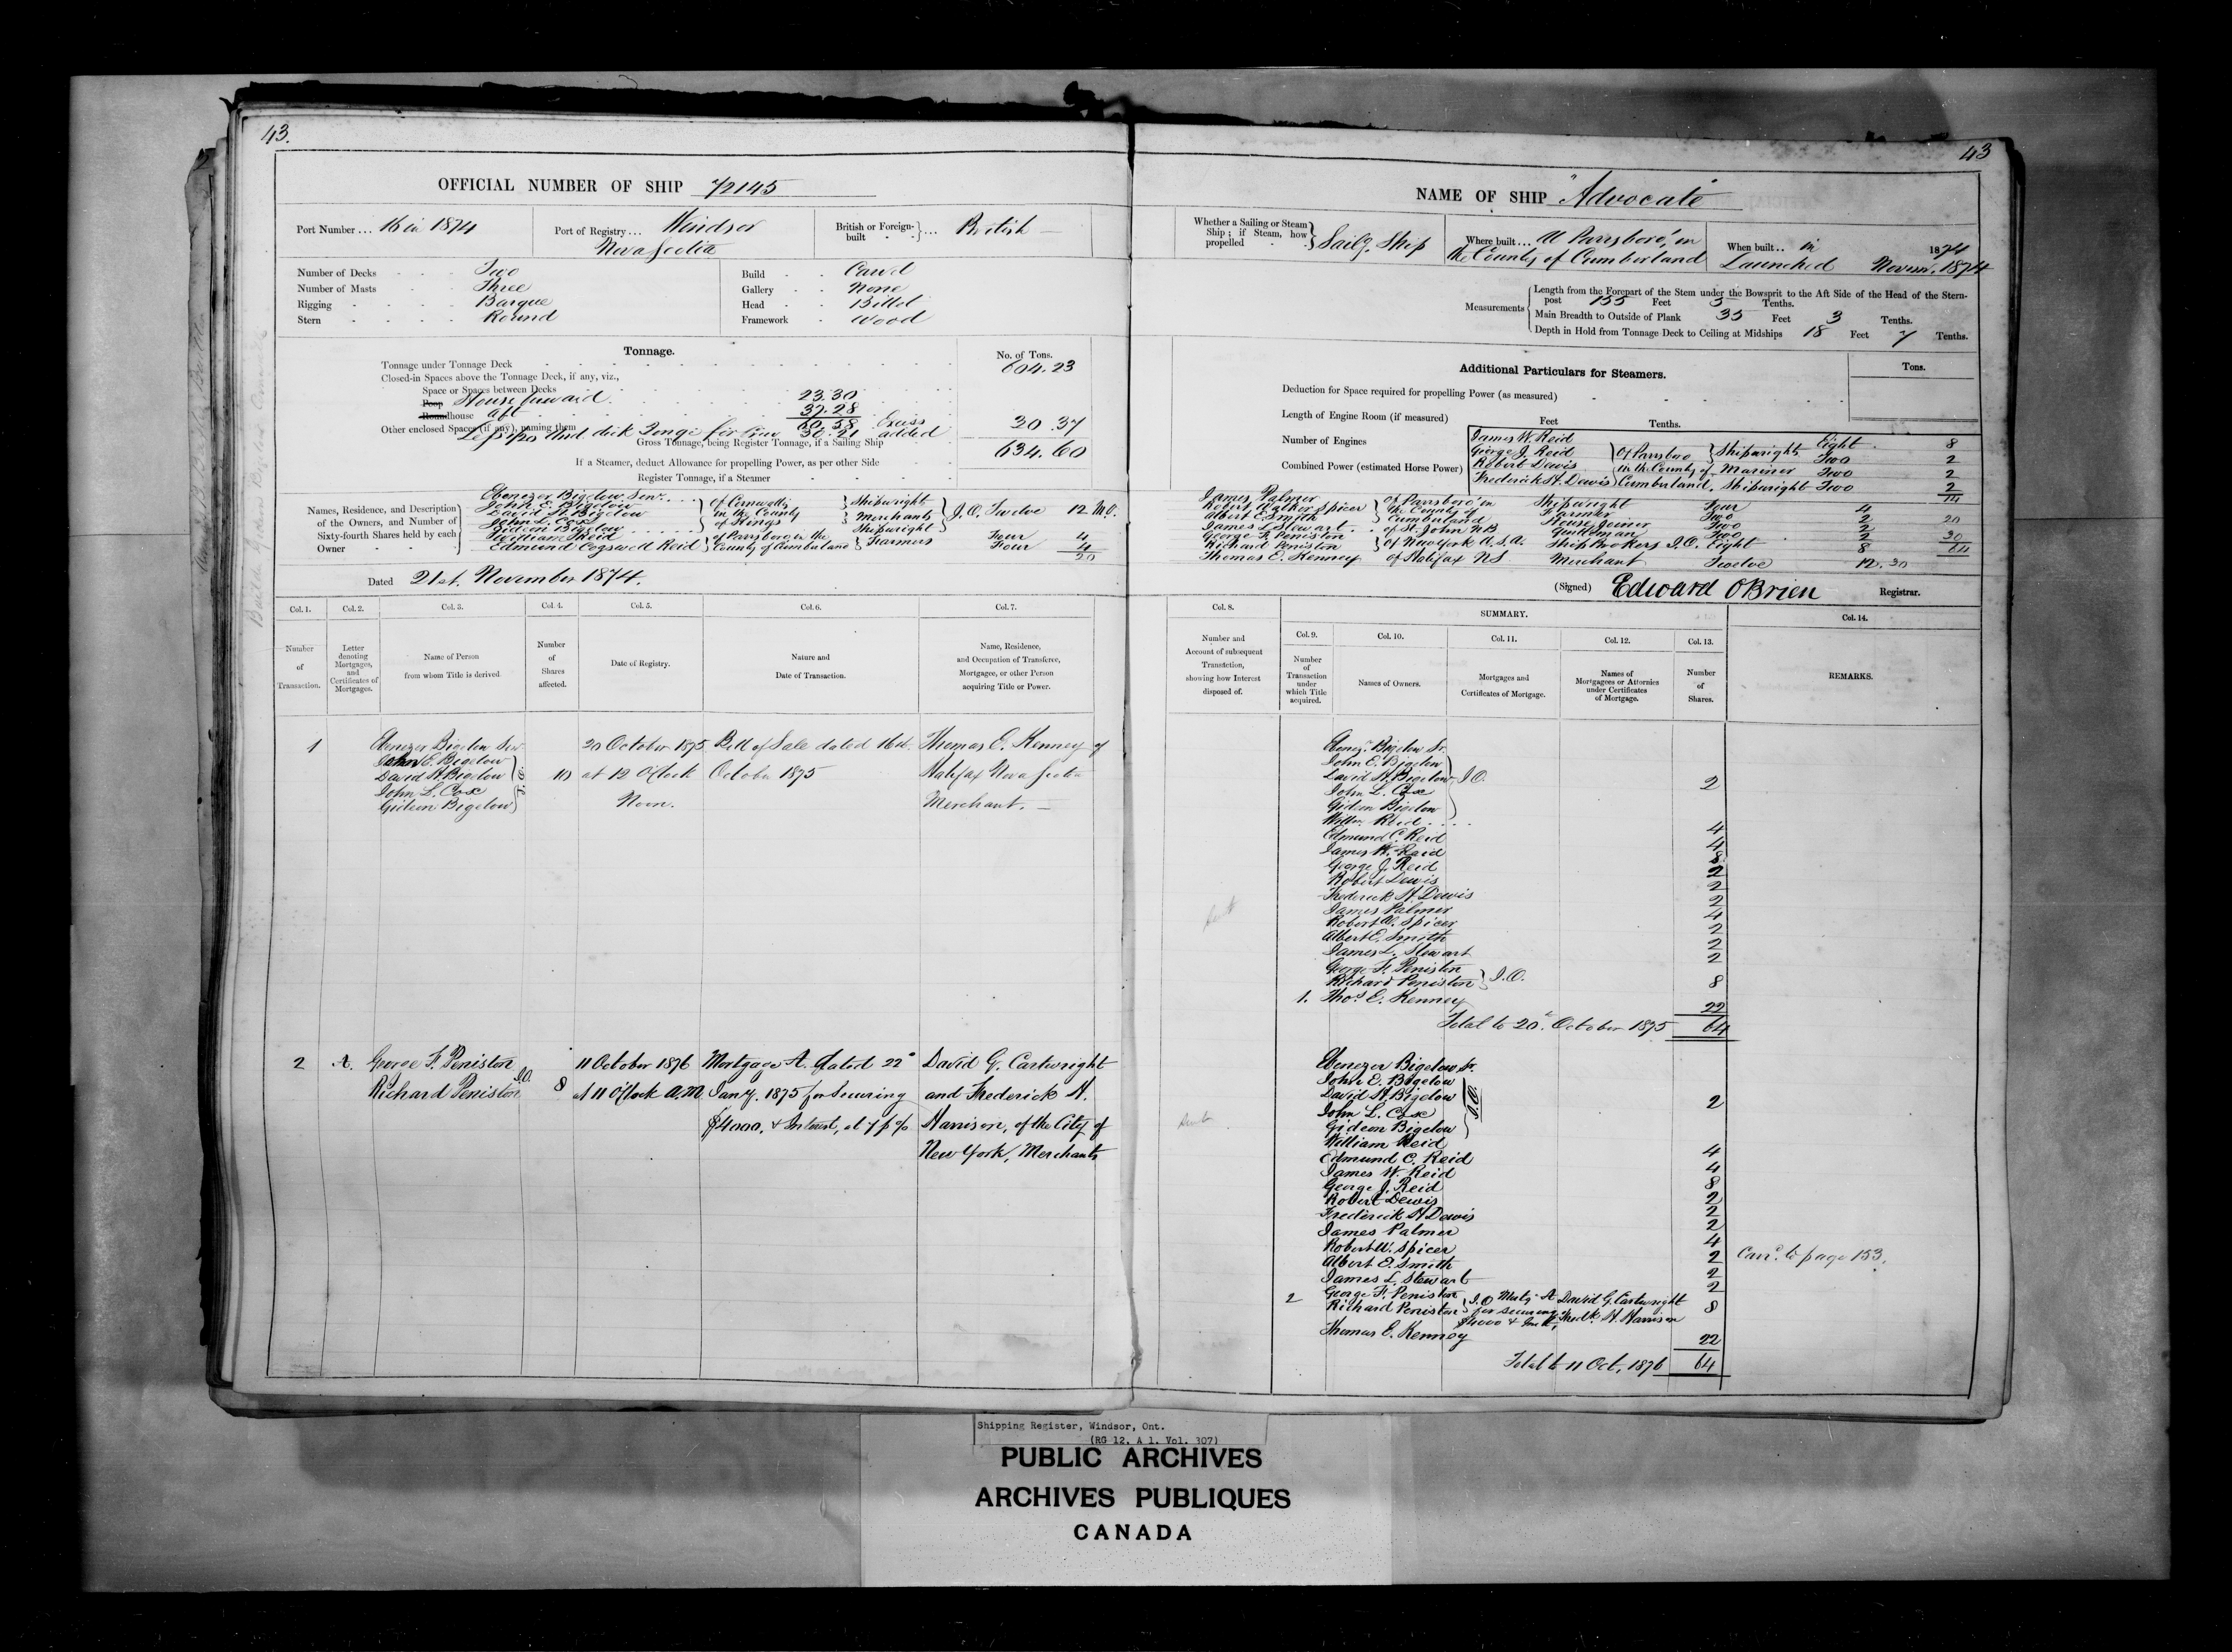 43.
OFFICIAL NUMBER OF SHIP 72145
Port Number... 16 in 1874
Port of Registry... Windsor
Nova Scotia
British or Foreign-built } ... British —
Number of Decks Two
Number of Masts Three
Rigging Barque
Stern Round
Build Carvl
Gallery None
Head Billet
Framework Wood
Tonnage.
No. of Tons.
Tonnage under Tonnage Deck 604.23
Closed-in Spaces above the Tonnage Deck, if any, viz.,
Space or Spaces between Decks
Poop House forward 23.30
Roundhouse aft 37.28
Other enclosed Spaces (if any), naming them 60.58 Excess
30.21 added 30.37
Gross Tonnage, being Register Tonnage, if a Sailing Ship 634.60
If a Steamer, deduct Allowance for propelling Power, as per other Side
Register Tonnage, if a Steamer
Names, Residence, and Description of the Owners, and Number of Sixty-fourth Shares held by each Owner
Ebenezer Bigelow Senr.
John E. Bigelow
David H. Bigelow
John L. Cox
Gideon Bigelow
of Cornwallis in the County of Kings
Shipwright
Merchants
Shipwright
J.O. Twelve 12
William Reid Four 4
Edmund Cogswell Reid of Parrsboro in the County of Cumberland Farmers Four 4
20
Dated 21st. November 1874.
Col. 1. Col. 2. Col. 3. Col. 4. Col. 5. Col. 6. Col. 7.
Number of Transaction.
Letter denoting Mortgages, and Certificates of Mortgages.
Name of Person from whom Title is derived.
Number of Shares affected.
Date of Registry.
Nature and Date of Transaction.
Name, Residence, and Occupation of Transferee, Mortgagee, or other Person acquiring Title or Power.
1 Ebenezer Bigelow Senr. 20 October 1875 Bill of Sale dated 16th. Thomas E. Kenney of
John E. Bigelow
David H. Bigelow J.O. 10 at 12 O'Clock October 1875 Halifax Nova Scotia
John L. Cox
Gideon Bigelow Noon. Merchant. —
2 A. George F. Peniston 11 October 1876 Mortgage A. dated 22d David G. Cartwright
Richard Peniston J.O. 8 at 11 O'Clock A.M. Jany. 1875 for Securing and Frederick H.
$4000. & Interest, at 7 p % Harrison, of the City of
New York, Merchants
43
NAME OF SHIP "Advocate"
Whether a Sailing or Steam Ship; if Steam, how propelled } Sailg. Ship
Where built... At Parrsboro', in
the County of Cumberland
When built.. in 1874
Launched Novem. 1874
Measurements
Length from the Forepart of the Stem under the Bowsprit to the Aft Side of the Head of the Stern-
post 135 Feet 3 Tenths.
Main Breadth to Outside of Plank 35 Feet 3 Tenths.
Depth in Hold from Tonnage Deck to Ceiling at Midships 18 Feet 7 Tenths.
Additional Particulars for Steamers.
Tons.
Deduction for Space required for propelling Power (as measured)
Length of Engine Room (if measured) Feet Tenths.
Number of Engines
Combined Power (estimated Horse Power)
James W. Reid Eight 8
George J. Reid Of Parrsboro Shipwrights Two 2
Robert Dewis in the County of Mariner Two 2
Frederick H. Dewis Cumberland. Shipwright Two 2
14
James Palmer of Parrsboro' in Shipwright Four 4
Robert Walker Spicer the County of Farmer Two 2
Albert E. Smith Cumberland House Joiner Two 2
James L. Stewart of St. John NB Two 2
George F. Peniston
Richard Peniston of New York U.S.A. Ship Brokers J.O. Eight 8
Thomas E. Kenney of Halifax NS Merchant Twelve 12. 30
20
30
64
(Signed) Edward OBrien Registrar.
Col. 8. SUMMARY. Col. 14.
Col. 9. Col. 10. Col. 11. Col. 12. Col. 13.
Number and Account of subsequent Transaction, showing how Interest disposed of.
Number of Transaction under which Title acquired.
Names of Owners.
Mortgages and Certificates of Mortgage.
Names of Mortgagees or Attornies under Certificates of Mortgage.
Number of Shares.
REMARKS.
Ebenezr. Bigelow Sr.
John E. Bigelow
David H. Bigelow J.O. 2
John L. Cox
Gideon Bigelow
Willm. Reid 4
Edmund C. Reid 4
James W. Reid 8
George J. Reid 2
Robert Dewis 2
Frederick H. Dewis 2
James Palmer 4
Robert W. Spicer 2
Albert E. Smith 2
James L. Stewart 2
George F. Peniston
Richard Peniston J.O. 8
1. Thos. E. Kenney 22
Total to 20th. October 1875 64
Ebenezer Bigelow Sr.
John E. Bigelow
David H. Bigelow J.O. 2
John L. Cox
Gideon Bigelow
William Reid 4
Edmund C. Reid 4
James W. Reid 8
George J. Reid 2
Robert Dewis 2
Frederick H Dewis 2
James Palmer 4
Robert W. Spicer 2 Carrd. to page 153.
Albert E. Smith 2
James L. Stewart 2
2 George F. Peniston J.O Mortg A David G. Cartwright
Richard Peniston for securing Fredk. H. Harrison 8
$4000 & Int.
Thomas E. Kenney 22
Total to 11 Oct, 1876 64
Shipping Register, Windsor, Ont.
(RG 12, A 1, Vol. 307)
PUBLIC ARCHIVES
ARCHIVES PUBLIQUES
CANADA